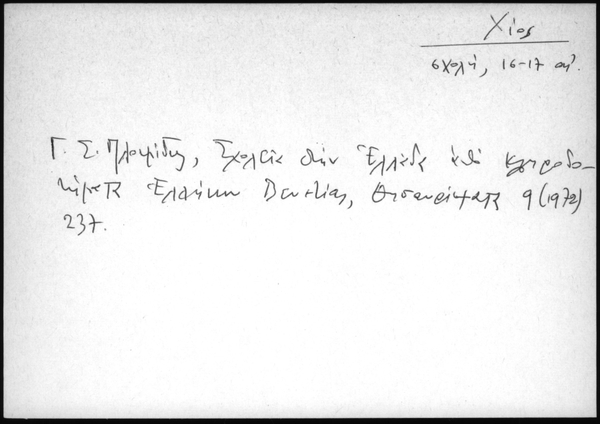 Χίος
σχολή, 16-17 αἰ.
Γ. Σ. Πλουμίδης, Σχολεῖα στὴν Ἑλλάδα ἀπὸ κληροδο-
τήματα Ἑλλήνων Βενετίας, Θησαυρίσματα 9 (1972)
237.